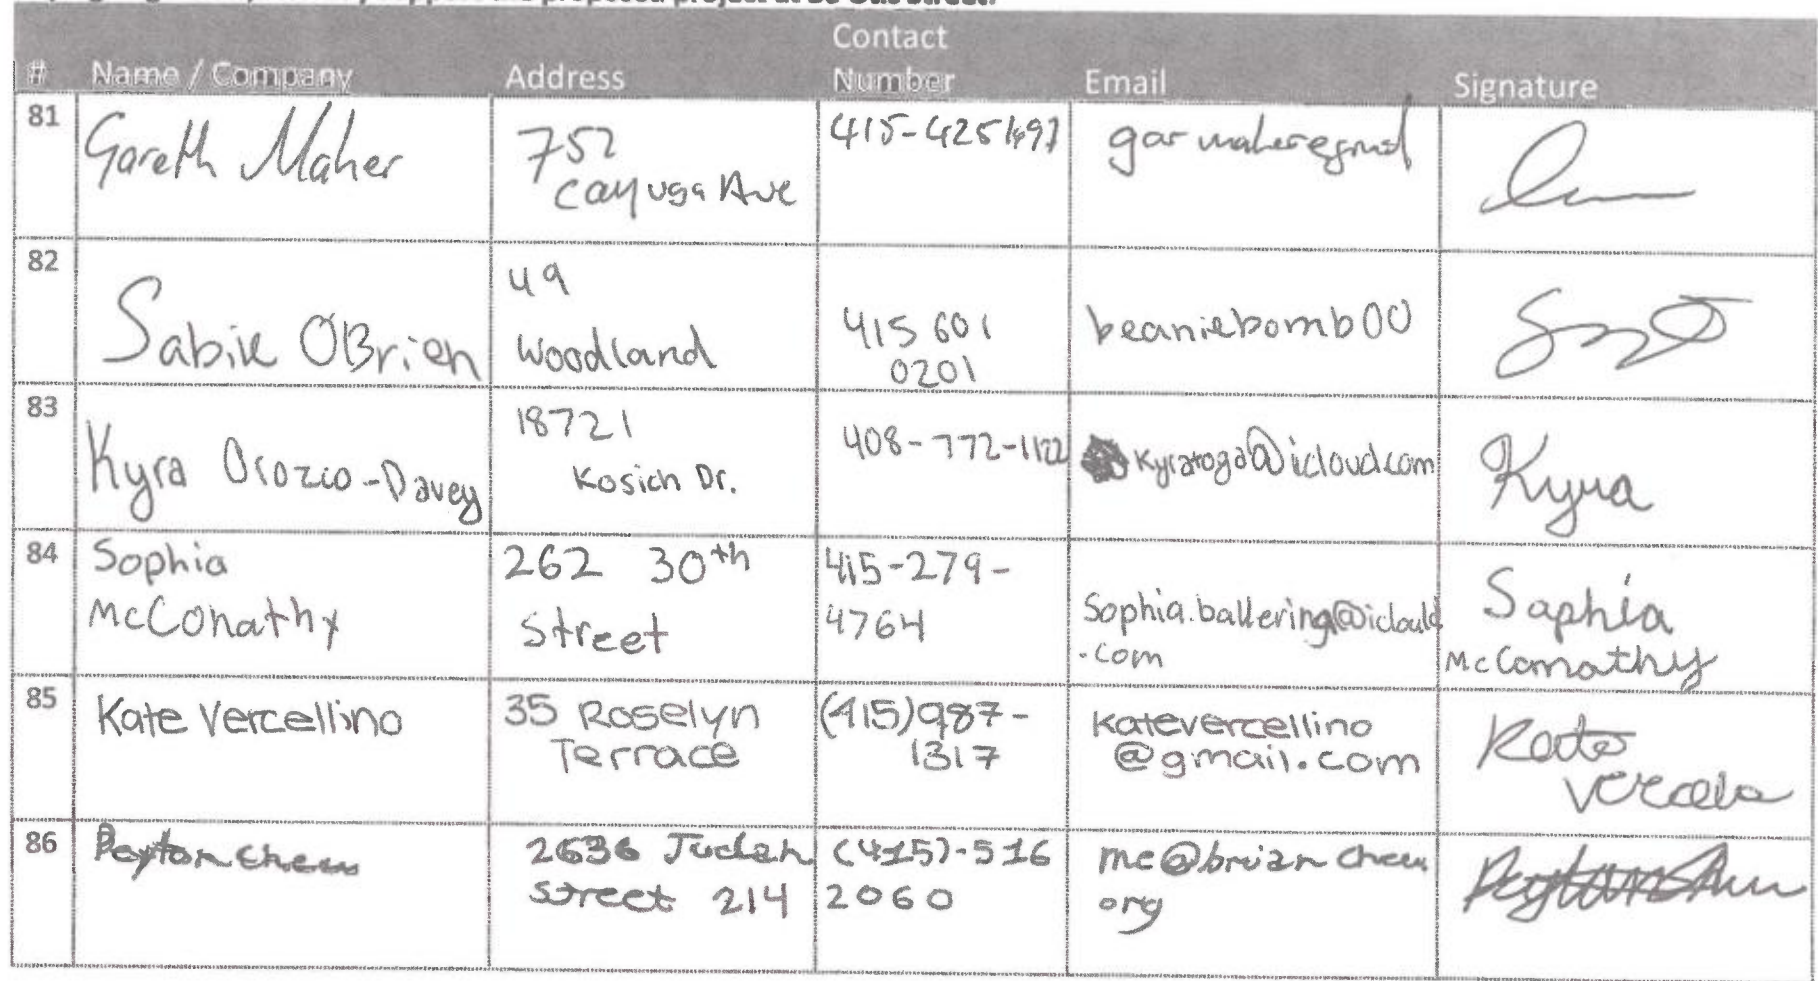 support the proposed project at
# Name / Company Address Contact Number Email Signature
81 Gareth Maher 752 Cayuga Ave
82 OBrien 49 Woodland 415 601 0201 beaniebomb00
83 Kyra Orozco-Davey 18721 Kosich Dr. 408-772-1122 Kyratoga@icloud.com Kyra
84 Sophia McConathy 262 30th Street 415-279-4764 Sophia.ballering@iclould.com Sophia McConathy
85 Kate Vercellino 35 Roselyn Terrace (415)987-1317 katevercellino@gmail.com Kate
86 Peyton Chew 2636 Judah Street 214 (415)-516 2060 me@brian chew org